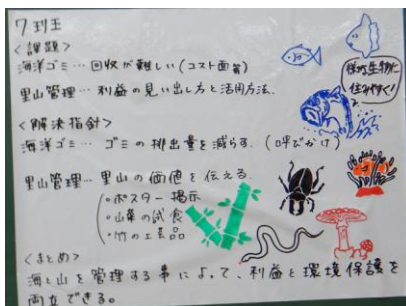 7班
<課題>
海洋ゴミ…回収が難しい(コスト面等)
里山管理…利益の見い出し方と活用方法。
様々な生物に
住みやすく!
<解決指針>
海洋ゴミ…ゴミの排出量を減らす。(呼びかけ)
里山管理…里山の価値を伝える。
・ポスター掲示
・山菜の試食
・竹の工芸品
<まとめ>
海と山を管理する事によって、利益と環境保護を
両立できる。